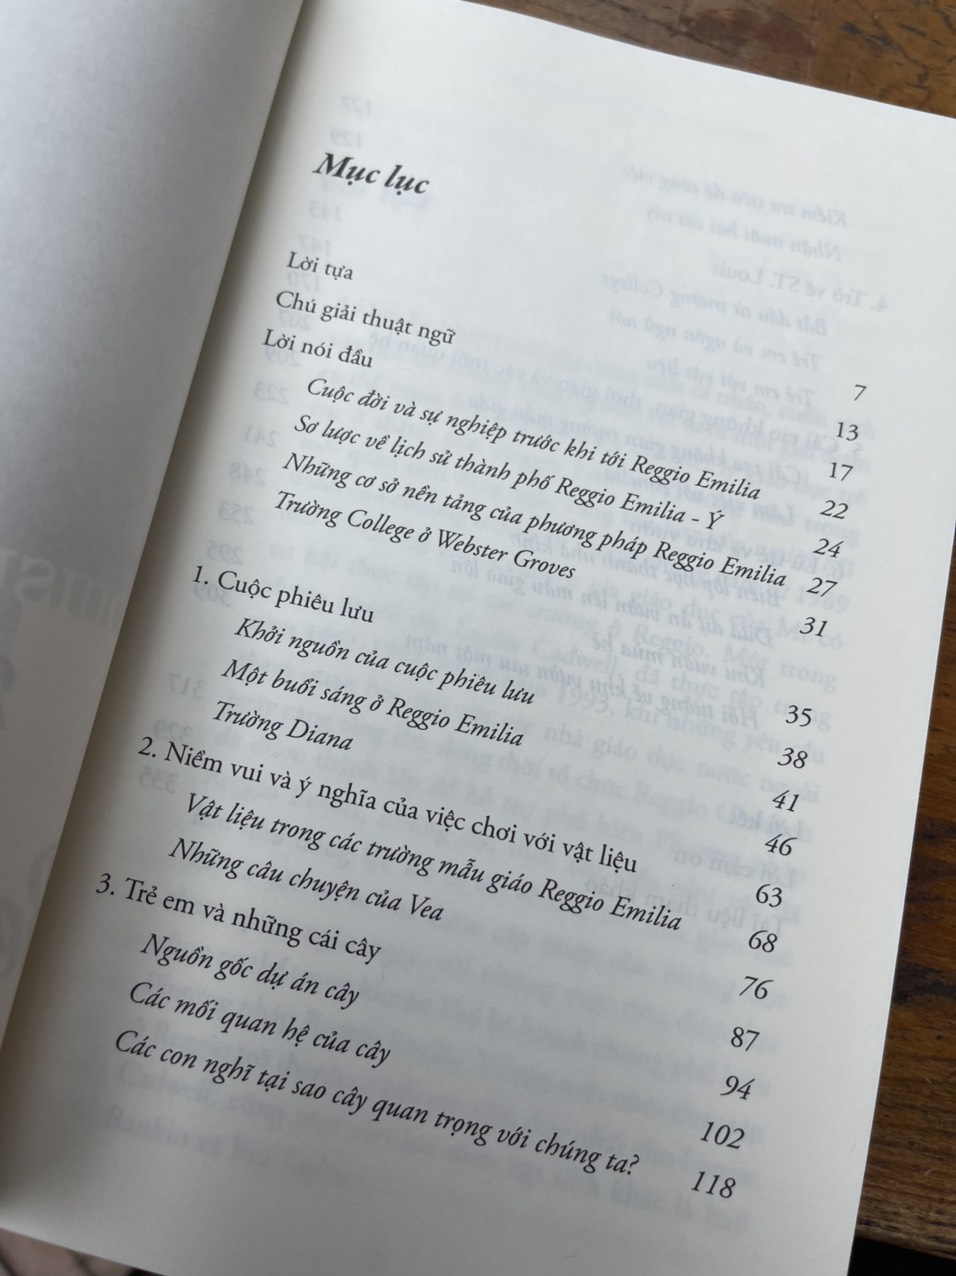 Mục lục
Lời tựa 7
Chú giải thuật ngữ 13
Lời nói đầu 17
Cuộc đời và sự nghiệp trước khi tới Reggio Emilia 22
Sơ lược về lịch sử thành phố Reggio Emilia - Ý 24
Những cơ sở nền tảng của phương pháp Reggio Emilia 27
Trường College ở Webster Groves 31
1. Cuộc phiêu lưu 35
Khởi nguồn của cuộc phiêu lưu 38
Một buổi sáng ở Reggio Emilia 41
Trường Diana 46
2. Niềm vui và ý nghĩa của việc chơi với vật liệu 63
Vật liệu trong các trường mẫu giáo Reggio Emilia 68
Những câu chuyện của Vea 76
3. Trẻ em và những cái cây 87
Nguồn gốc dự án cây 94
Các mối quan hệ của cây 102
Các con nghĩ tại sao cây quan trọng với chúng ta? 118